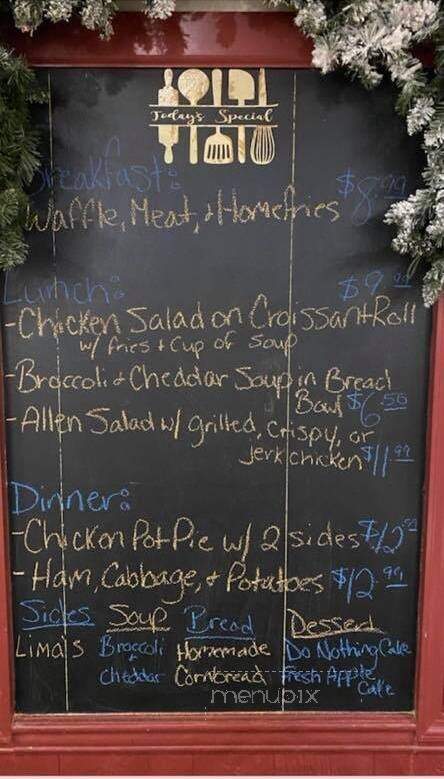 Today's Special
Breakfast: $8.99
Waffle, Meat, + Homefries
Lunch: $9.99
-Chicken Salad on Croissant Roll
w/ fries + Cup of Soup
-Broccoli + Cheddar Soup in Bread
Bowl $6.50
-Allen Salad w/ grilled, crispy, or
jerk chicken $11.99
Dinner:
-Chicken Pot Pie w/ 2 sides $12.50
-Ham, Cabbage, + Potatoes $12.99
Sides Soup Bread Dessert
Lima's Broccoli Homemade Do Nothing Cake
+ Cheddar Cornbread Fresh Apple
Cake
menupix